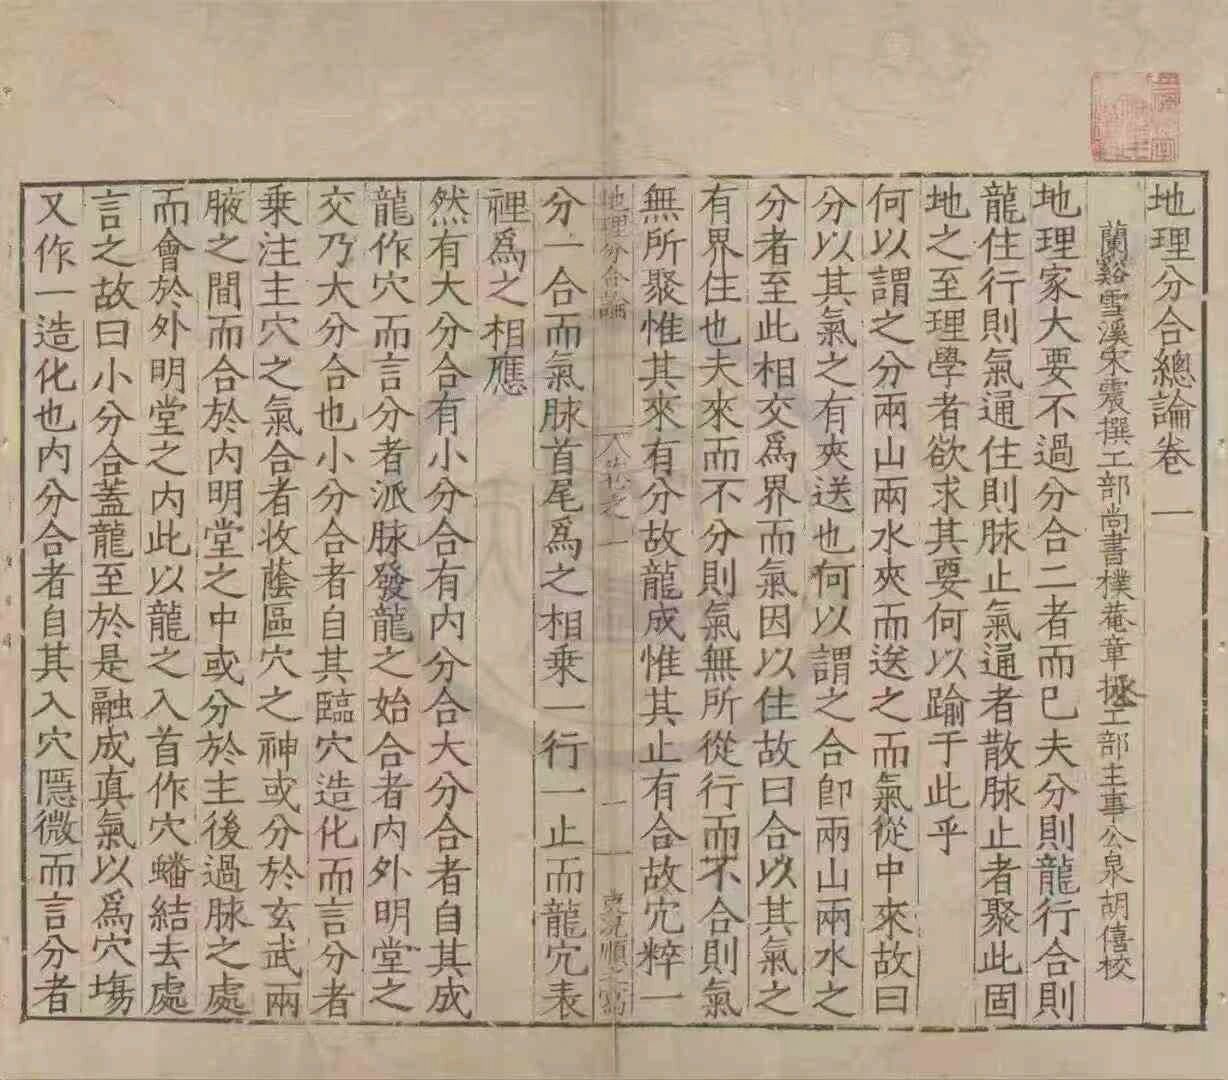 地理分合總論卷一
蘭谿雪溪宋震撰工部尚書樸菴章拯工部主事公泉胡僖校
地理家大要不過分合二者而已夫分則龍行合則
龍住行則氣通住則脉止氣通者散脉止者聚此固
地之至理學者欲求其要何以踰于此乎
何以謂之分兩山兩水夾而送之而氣從中來故曰
分以其氣之有夾送也何以謂之合卽兩山兩水之
分者至此相交爲界而氣因以住故曰合以其氣之
有界住也夫來而不分則氣無所從行而不合則氣
無所聚惟其來有分故龍成惟其止有合故穴粹一
地理分合論
卷之一
一
分一合而氣脉首尾爲之相乗一行一止而龍穴表
裡爲之相應
然有大分合有小分合有內分合大分合者自其成
龍作穴而言分者派脉發龍之始合者內外明堂之
交乃大分合也小分合者自其臨穴造化而言分者
乗注主穴之氣合者收䕃區穴之神或分於玄武兩
腋之間而合於內明堂之中或分於主後過脉之處
而會於外明堂之內此以龍之入首作穴蟠結去處
言之故曰小分合蓋龍至於是融成真氣以爲穴塲
又作一造化也內分合者自其入穴隱微而言分者